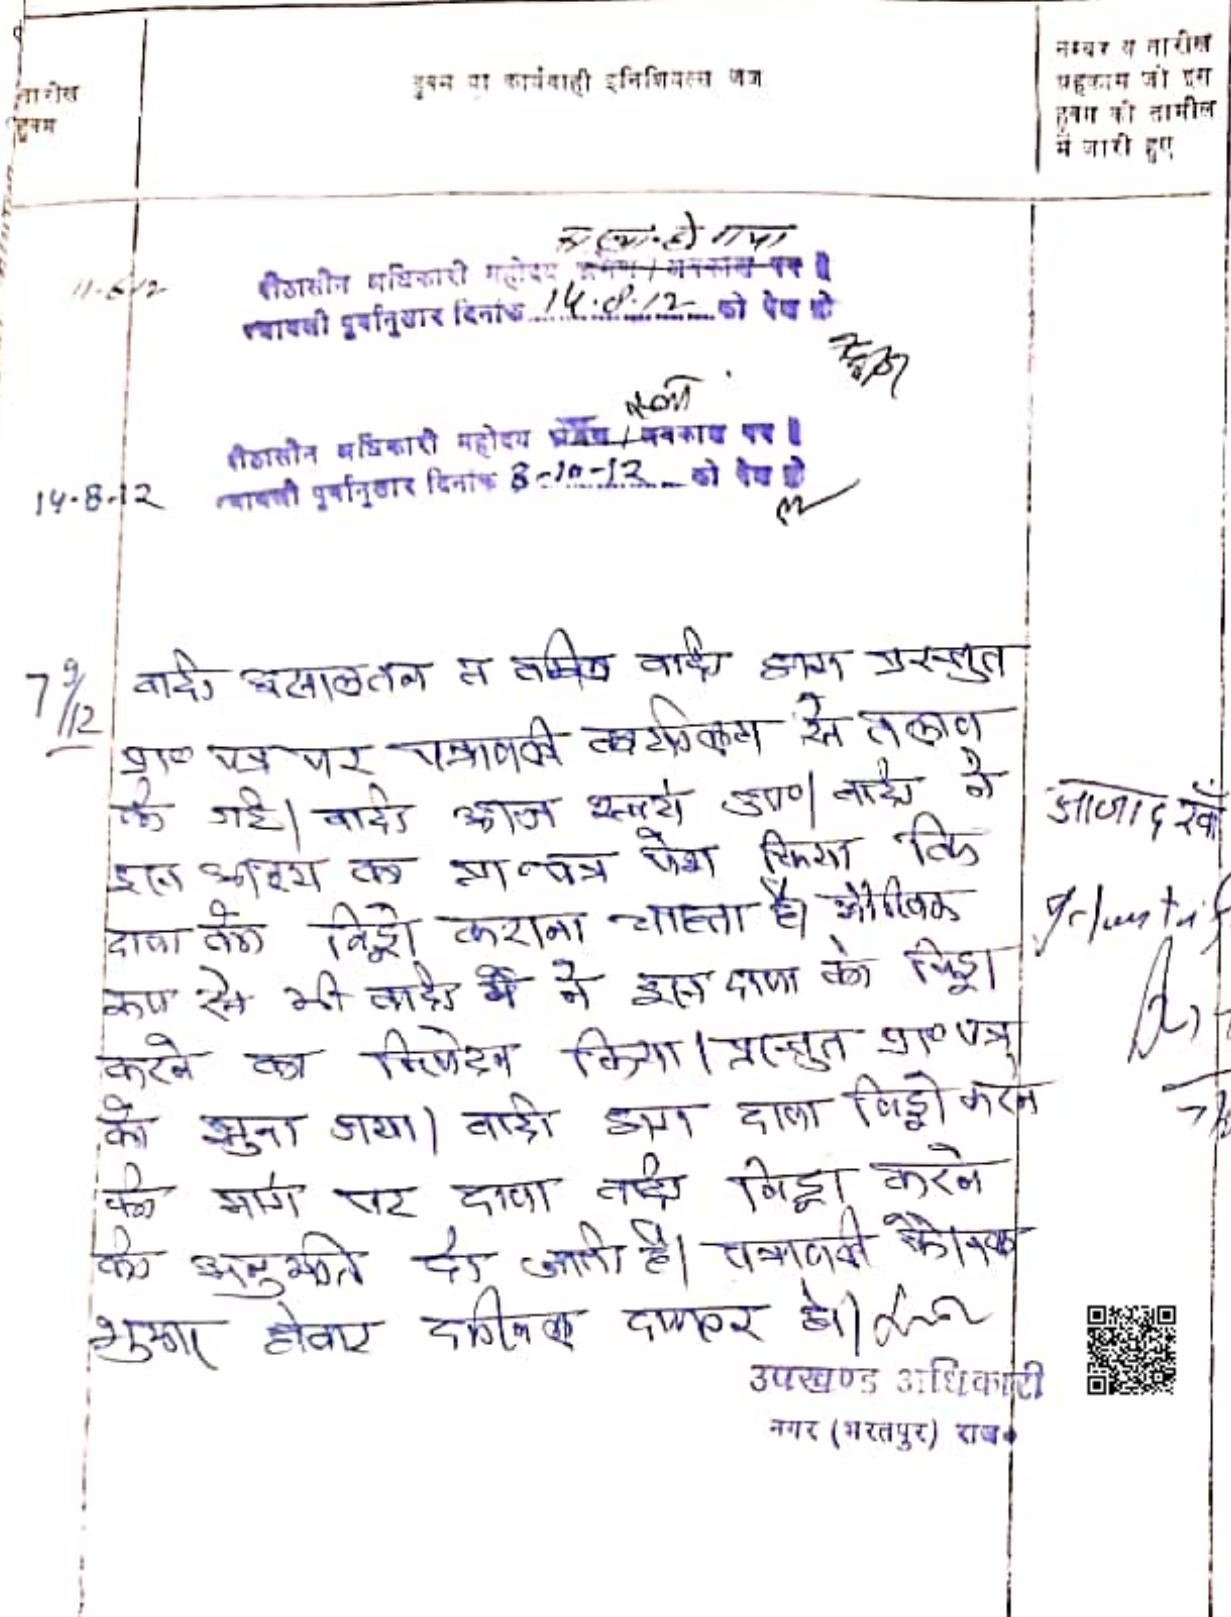 तारीख
हुक्म
हुक्म या कार्यवाही इनिशियल्स जज
नम्बर व तारीख
अहकाम जो इस
हुक्म की तामील
में जारी हुए
हो गया
11-6-12
पीठासीन अधिकारी महोदय अवकाश पर
पत्रावली पूर्वानुसार दिनांक 14.8.12 को पेश हो
पीठासीन अधिकारी महोदय अवकाश पर
14-8-12
पत्रावली पूर्वानुसार दिनांक 8-10-12 को पेश हो
7/9/12
वादी असालतन व वादी द्वारा प्रस्तुत
प्रा० पत्र पर पत्रावली से तलब
की गई। वादी आज स्वयं उप०। वादी ने
इस आशय का प्रा० पत्र पेश किया कि
दावा को विड्रो कराना चाहता है। मौखिक
रूप से भी वादी ने इस दावा को विड्रा
करने का निवेदन किया। प्रस्तुत प्रा० पत्र
को सुना गया। वादी द्वारा दावा विड्रो करने
की मांग पर दावा वादी विड्रा करने
की अनुमति दी जाती है। पत्रावली
शुमार होकर दाखिल दफ्तर हो।
उपखण्ड अधिकारी
नगर (भरतपुर) राज०